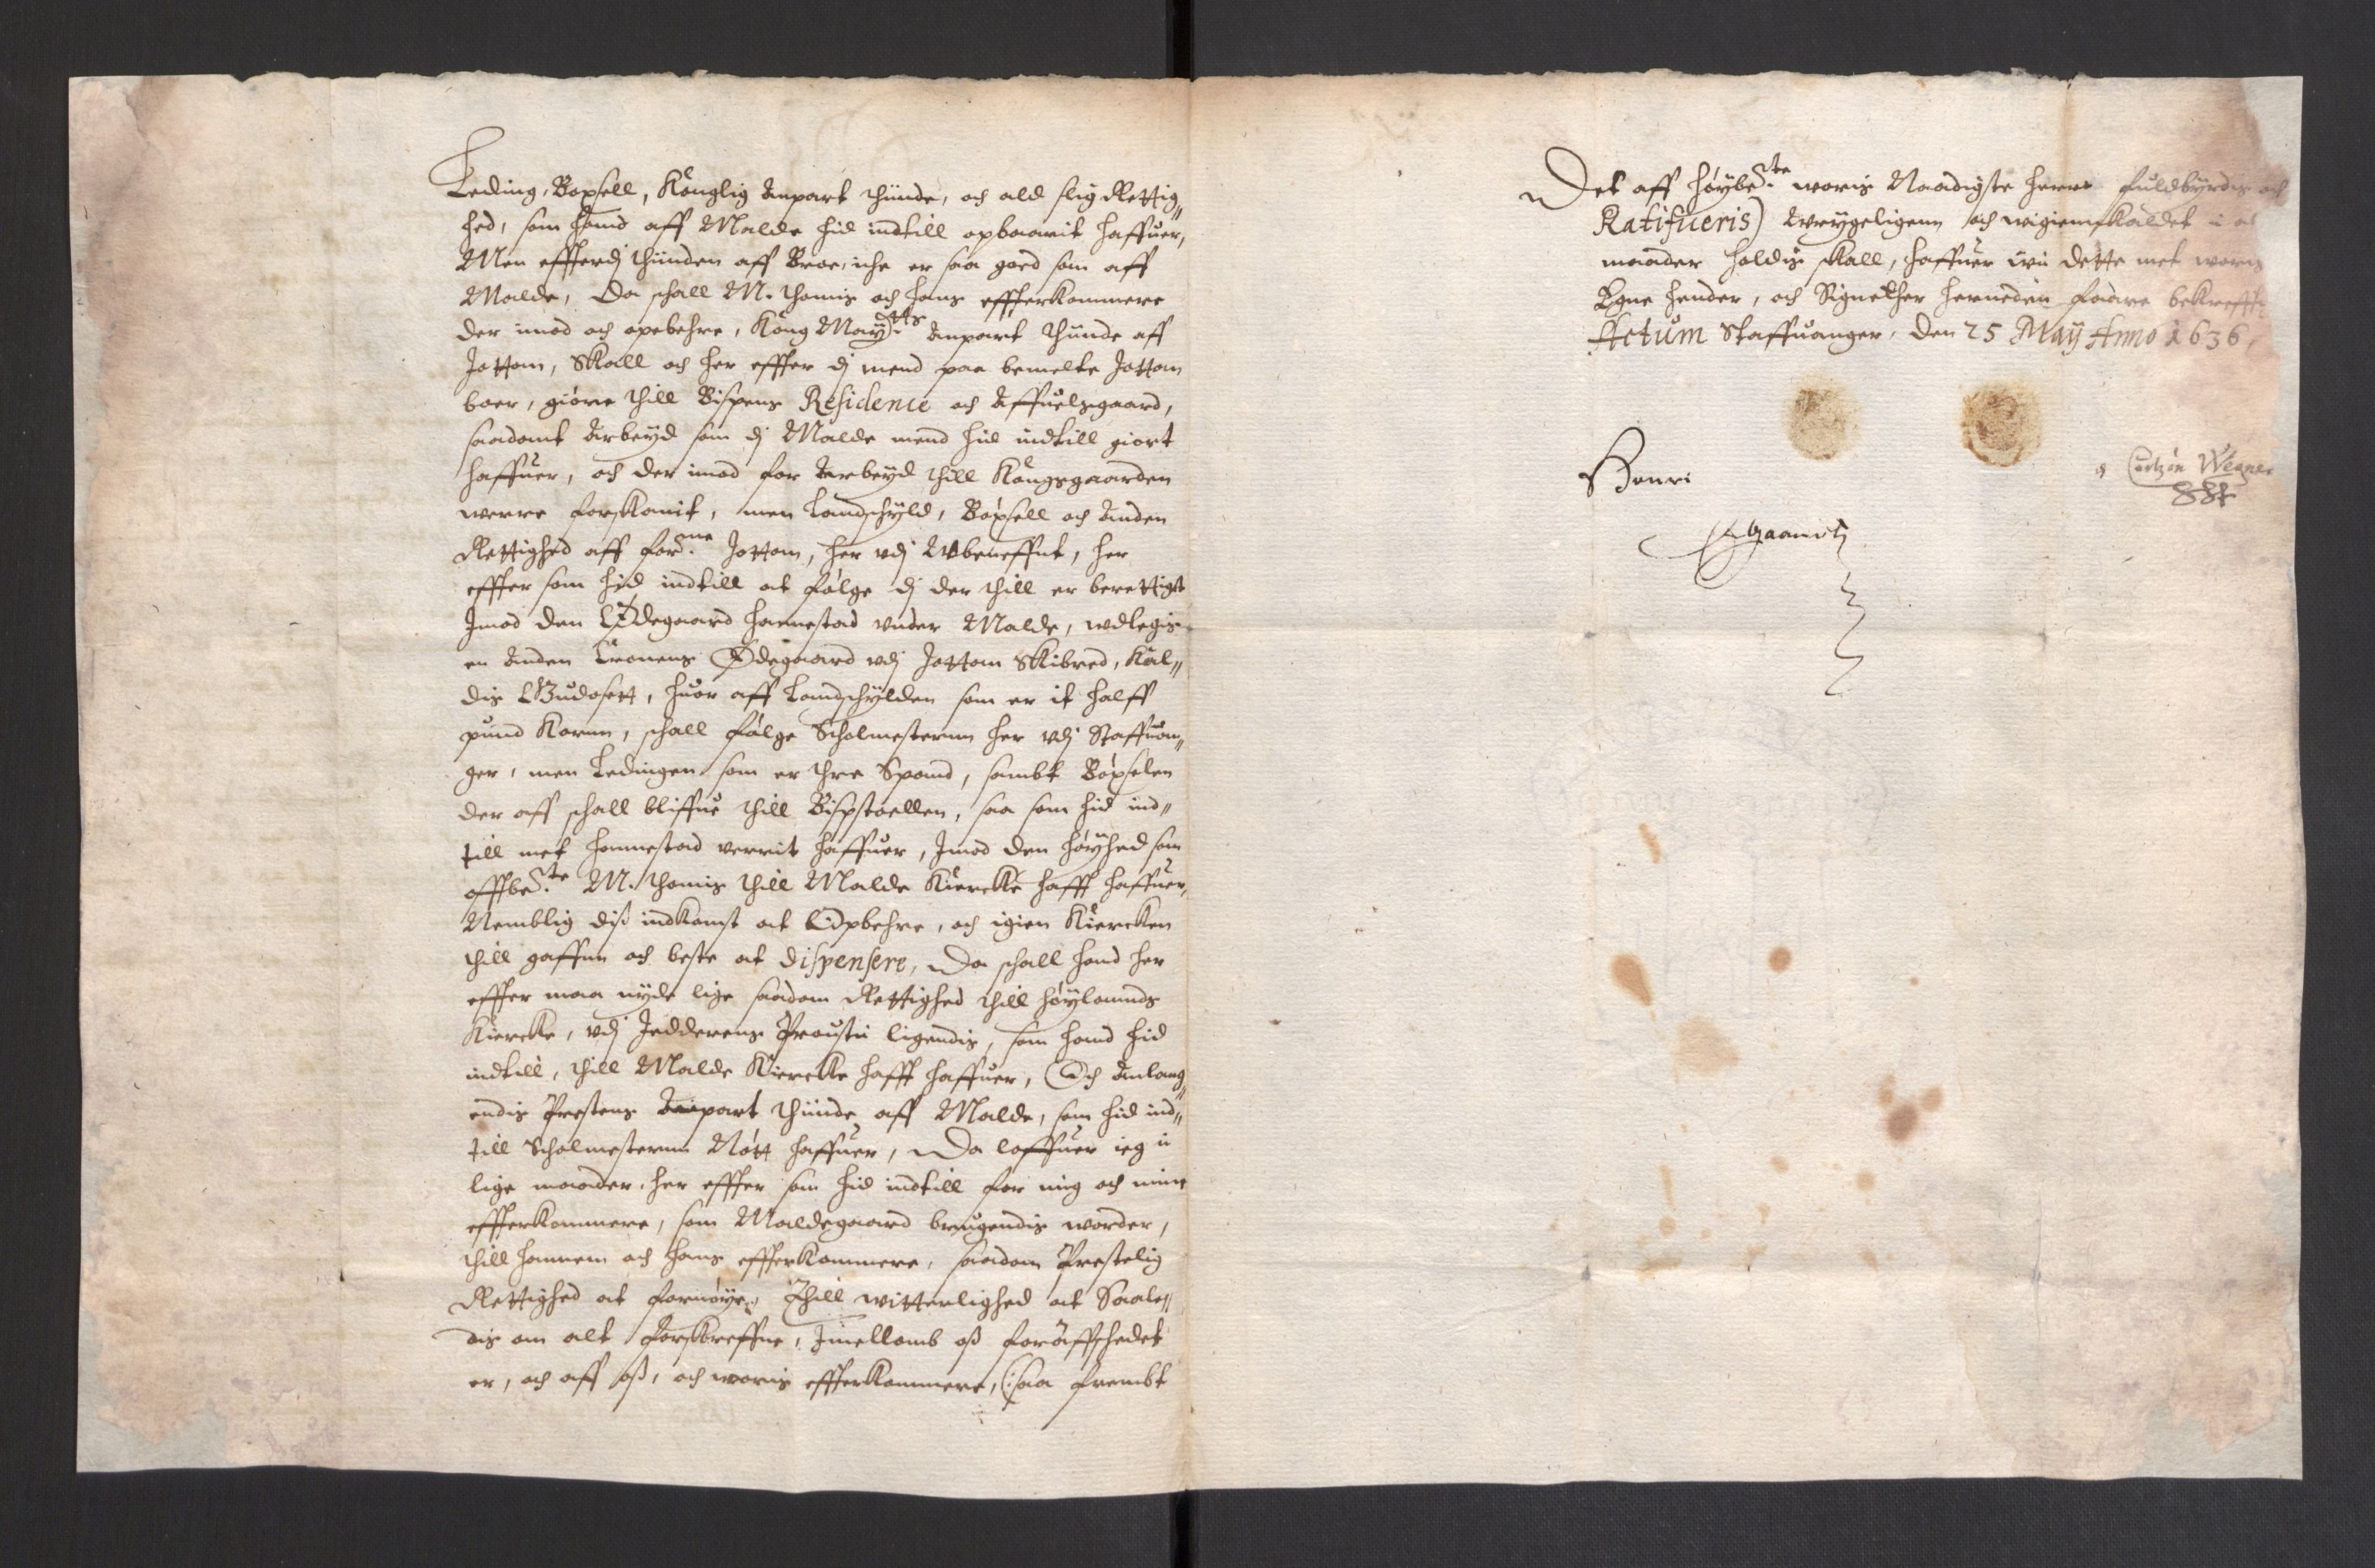 Leding, Boxsell, Konglig Anpart thiinde, och ald slig Rettig„
hed, som hand aff Malde hid indtill opbaarit haffuer,
Men effterdj thiinden aff Broe, iche er saa goed som aff
Malde, Da schall M. Thomis och hans effterkommere
der imod och opebehre, Kong May:tts Anpart thiinde aff
Jottom, Skall och her effter dj mend paa bemelte Jottom
boer, giøre thill Bispens Residence och Affuelsgaard,
saadant Arbeyd som dj Malde mend hid indtill giort
haffuer, och der imod for Arbeyd thill Kongsgaarden
werre forskonit, men Landschyld, Boxsell och Anden
Rettighed aff for:ne Jottom, her vdj Vbeneffnt, her
effter som hid indtill at følge dj der thill er berettiget
Imod den Ødegaard Hannestad vnder Malde, vdlegis
en Anden Cronens Ødegaard vdj Jottom Skibred, Kal„
dis Gudosett, huor aff Landschylden som er it halff
pund Kornn, schall følge Scholmesterenn her vdj Staffuan„
ger, men Ledingen som er thre Spand, sambt Boxselen
der aff schall bliffue thill Bispstoellen, saa som hid ind„
till met Hannestad verrit haffuer, Imod den høyhed som
offtbe:te M. Thomis thill Malde Kiercke hafft haffuer,
Nemblig dis indkomst at Opbehre, och igien Kiercken
thill gaffnn och beste at dispensere, Da schall hand her
effter maa nyde lige saadan Rettighed thill Høylannds
Kiercke, vdj Jedderens Proustii ligendis, som hand hid
indtill, thill Malde Kiercke hafft haffuer, Och Anlang„
endis Prestens Anpart thiinde aff Malde, som hid ind„
till Scholmesterenn Nøtt haffuer, Da loffuer ieg i
lige maader, her effter som hid indtill for mig och mine
effterkommere, som Maldegaard brugendis worder,
thill hannem och hans effterkommere, saadan Prestelig
Rettighed at fornøye, Thill witterlighed at Saale„
dis om alt forskreffne, Imellomb oss foraffschedet
er, och aff oss, och woris effterkommere, (:saa frembt
Det aff høybe:te woris Naadigste herre fuldbyrdis och
Ratificeris) Vryggeligenn och wigienkaldet i
maader holdis skall, haffuer wii dette met woris
Egne hender, och Signether herneden faare bekreffte
Actum Staffuanger, den 25 Maÿ Anno 1636,
Wegner